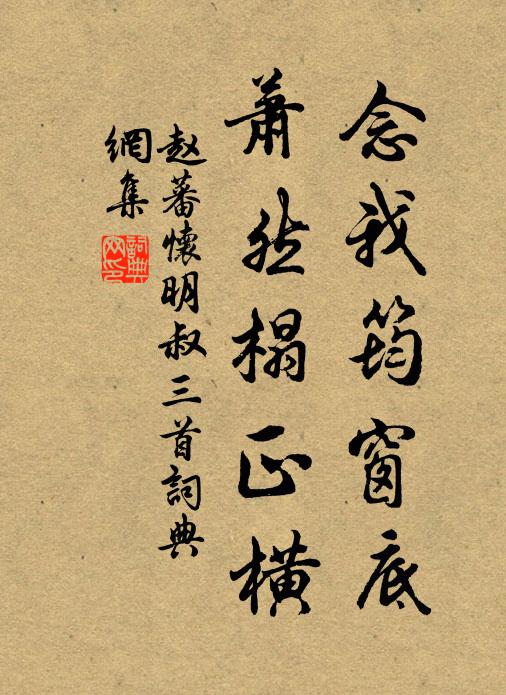 念我筠窗底
萧然榻正横
赵蕃懷明叔三首詞典
網集
詞典
网印